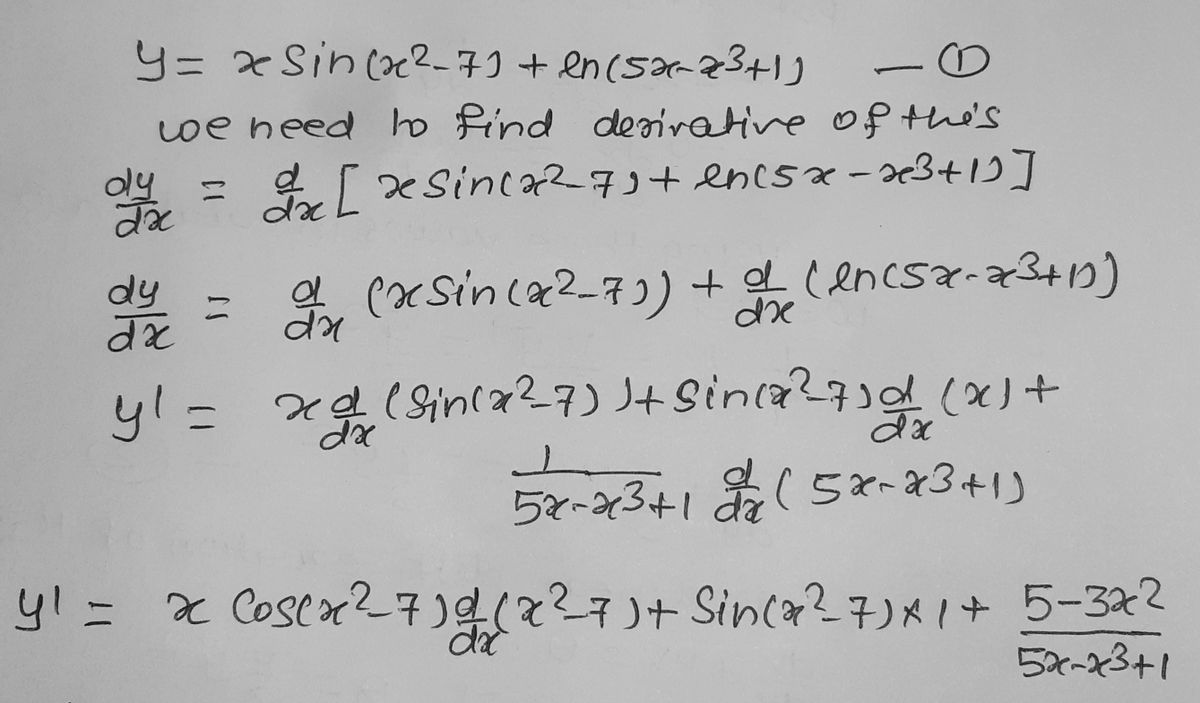 y = x Sin(x²-7) + ln(5x-x³+1) — ①
we need to find derivative of this
dy/dx = d/dx [ x Sin(x²-7) + ln(5x-x³+1) ]
dy/dx = d/dx (x Sin(x²-7)) + d/dx (ln(5x-x³+1))
y' = x d/dx (Sin(x²-7)) + Sin(x²-7) d/dx (x) +
1/(5x-x³+1) d/dx (5x-x³+1)
y' = x Cos(x²-7) d/dx (x²-7) + Sin(x²-7) × 1 + (5-3x²)/(5x-x³+1)